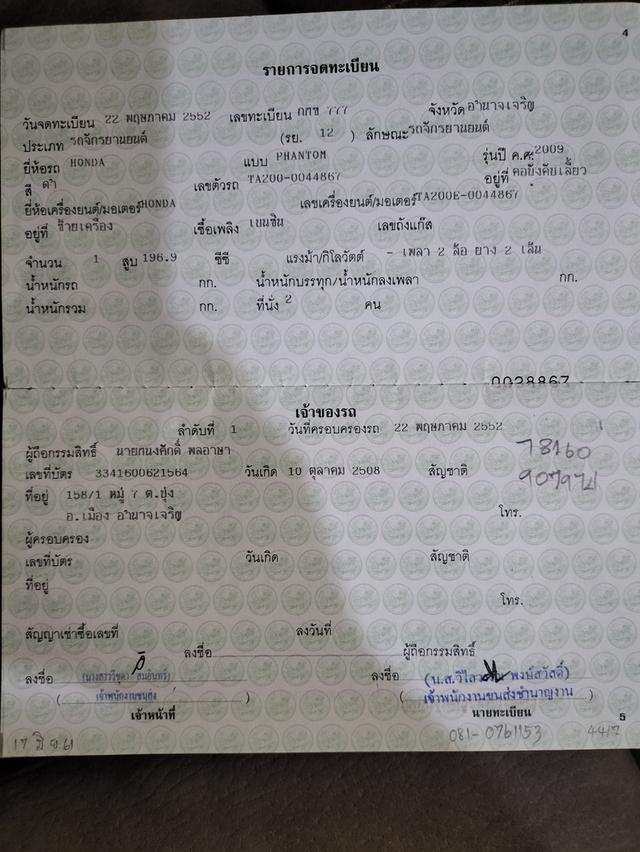 4
รายการจดทะเบียน
วันจดทะเบียน 22 พฤษภาคม 2552 เลขทะเบียน กกข 777 จังหวัด อำนาจเจริญ
ประเภท รถจักรยานยนต์ (รย. 12 ) ลักษณะ รถจักรยานยนต์
ยี่ห้อรถ HONDA แบบ PHANTOM รุ่นปี ค.ศ. 2009
สี ดำ เลขตัวรถ TA200-0044867 อยู่ที่ คอบังคับเลี้ยว
ยี่ห้อเครื่องยนต์/มอเตอร์ HONDA เลขเครื่องยนต์/มอเตอร์ TA200E-0044867
อยู่ที่ ซ้ายเครื่อง เชื้อเพลิง เบนซิน เลขถังแก๊ส
จำนวน 1 สูบ 196.9 ซีซี แรงม้า/กิโลวัตต์ - เพลา 2 ล้อ ยาง 2 เส้น
น้ำหนักรถ กก. น้ำหนักบรรทุก/น้ำหนักลงเพลา กก.
น้ำหนักรวม กก. ที่นั่ง 2 คน
0028867
เจ้าของรถ
ลำดับที่ 1 วันที่ครอบครองรถ 22 พฤษภาคม 2552
ผู้ถือกรรมสิทธิ์ นายทนงศักดิ์ พลอาษา
78160
เลขที่บัตร 3341600621564 วันเกิด 10 ตุลาคม 2508 สัญชาติ
ที่อยู่ 158/1 หมู่ 7 ต.บุ่ง
อ.เมือง อำนาจเจริญ โทร.
ผู้ครอบครอง
เลขที่บัตร วันเกิด สัญชาติ
ที่อยู่
โทร.
สัญญาเช่าซื้อเลขที่ ลงวันที่
ลงชื่อ ผู้ถือกรรมสิทธิ์
ลงชื่อ (นางสาววิชุดา สมอินทร์) ลงชื่อ (น.ส.วิไลวรรณ พงษ์สวัสดิ์)
( เจ้าพนักงานขนส่ง ) ( เจ้าพนักงานขนส่งชำนาญงาน )
เจ้าหน้าที่ นายทะเบียน 5
17 มิ.ย 61 081-0761153 44/7